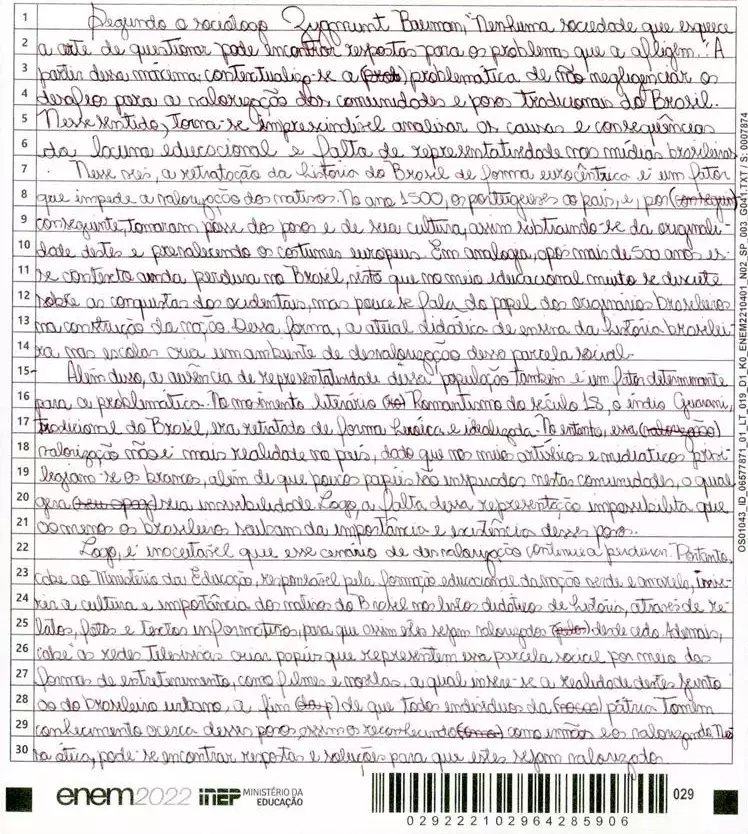 1 Segundo o sociólogo Zygmunt Bauman, "Nenhuma sociedade que esquece
2 a arte de questionar pode encontrar respostas para os problemas que a afligem." A
3 partir dessa máxima, contextualiza-se a problemática de não negligenciar os
4 desafios para a valorização das comunidades e povos tradicionais do Brasil.
5 Nesse sentido, torna-se imprescindível analisar as causas e consequências
6 da lacuna educacional e falta de representatividade nas mídias brasileiras.
7 Nesse viés, a retratação da história do Brasil de forma eurocêntrica é um fator
8 que impede a valorização dos nativos. No ano 1500, os portugueses ao país, e, por (conseguin)
9 conseguinte, tomaram posse dos povos e de sua cultura, assim subtraindo-se da originali-
10 dade destes e prevalecendo os costumes europeus. Em analogia, após mais de 500 anos es-
11 se contexto ainda perdura no Brasil, visto que no meio educacional muito se discute
12 sobre as conquistas dos ocidentais, mas pouco se fala do papel dos originários brasileiros
13 na construção da nação. Dessa forma, a atual didática de ensino da história brasilei-
14 ra nas escolas cria um ambiente de desvalorização dessa parcela social.
15 Além disso, a ausência de representatividade dessa população também é um fator determinante
16 para a problemática. No movimento literário (do) Romantismo do século 18, o índio Guarani,
17 tradicional do Brasil, era retratado de forma heróica e idealizada. No entanto, essa (valorização)
18 valorização não é mais realidade no país, dado que nos meios artísticos e midiáticos privi-
19 legiam-se os brancos, além de que poucos papéis são inspirados nestas comunidades, o qual
20 gera sua invisibilidade. Logo, a falta dessa representação impossibilita que
21 ao menos os brasileiros saibam da importância e existência desses povos.
22 Logo, é inaceitável que esse cenário de desvalorização continue a perdurar. Portanto,
23 cabe ao Ministério da Educação, responsável pela formação educacional da nação verde e amarela, inse-
24 rir a cultura e importância dos nativos do Brasil nos livros didáticos de história, através de re-
25 latos, fotos e textos informativos, para que assim eles sejam valorizados desde cedo. Ademais,
26 cabe as redes televisivas criar papéis que representem essa parcela social por meio das
27 formas de entretenimento, como filmes e novelas, a qual insere-se a realidade destes junto
28 ao do brasileiro urbano, a fim de que todo indivíduos da pátria tomem
29 conhecimento acerca desses povos, assim os reconhecendo (como) como irmãos e os valorizando. Nes-
30 sa ótica, pode-se encontrar respostas e soluções para que estes sejam valorizados.
OS01043_ID_06577871_01_LT_019_D1_K0_ENEM2210401_N02_SP_003_G041.TXT / S: 0007874
enem2022 inep MINISTÉRIO DA EDUCAÇÃO
029
029222102964285906